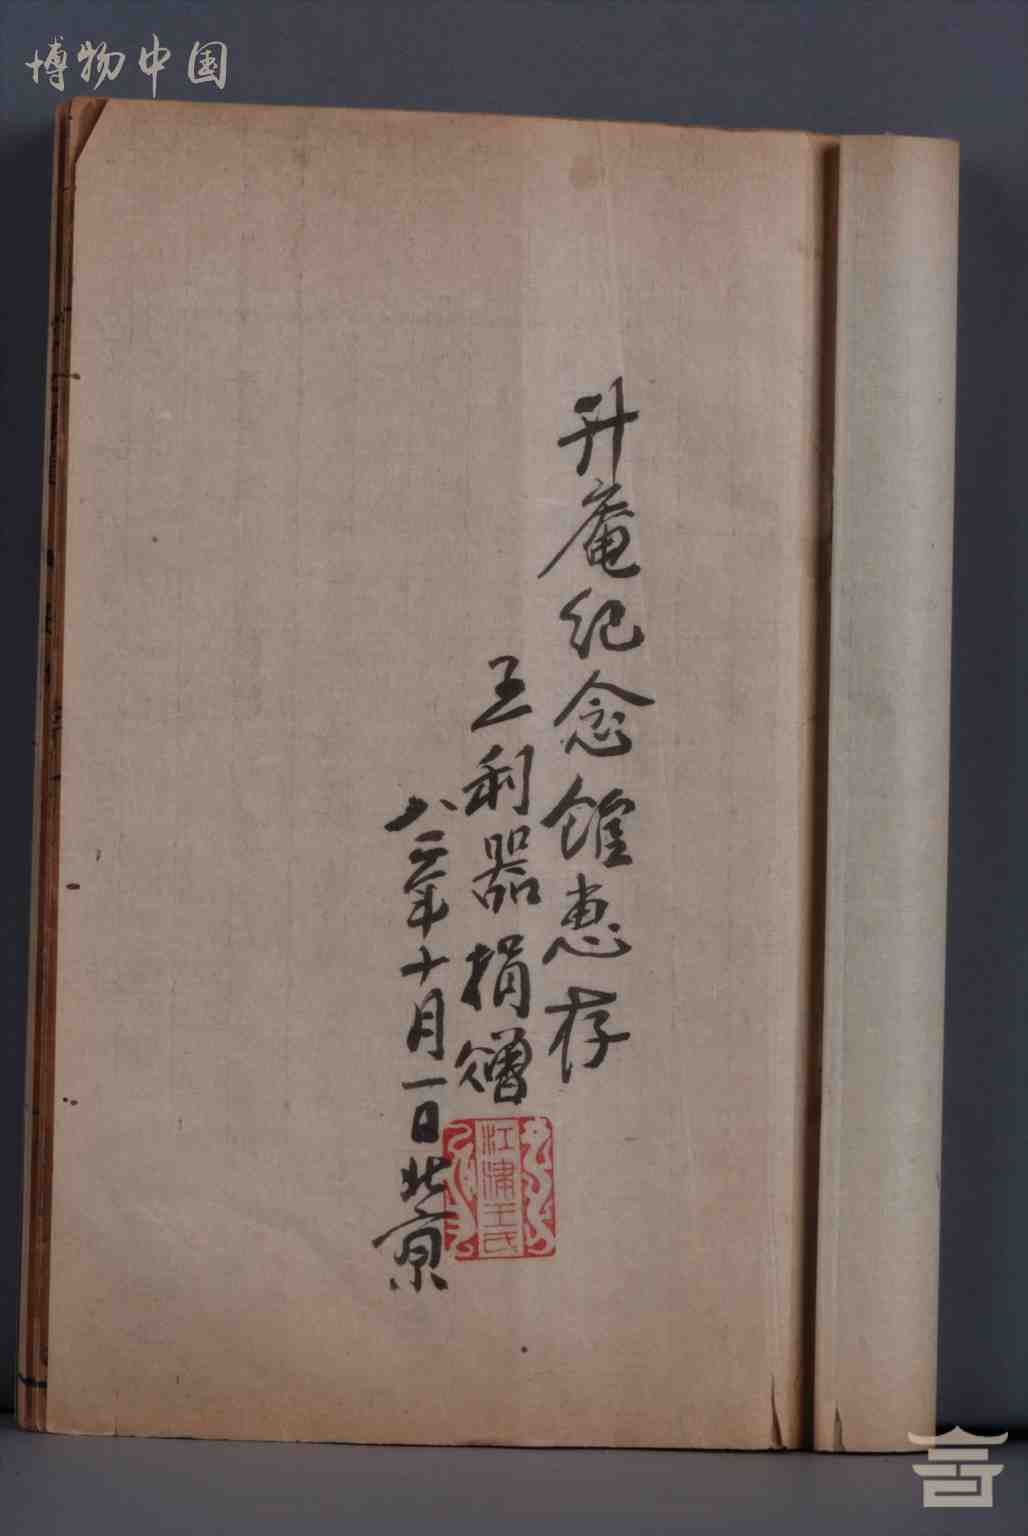 博物中国
升庵纪念馆惠存
王利器捐赠
八二年十月一日北京
江津王氏